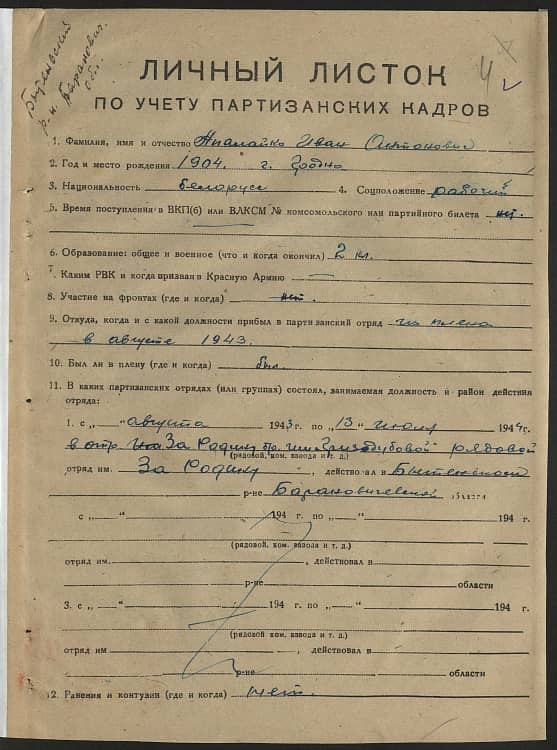 Бытенский
р-н. Баранович.
обл.
4
ЛИЧНЫЙ ЛИСТОК
ПО УЧЕТУ ПАРТИЗАНСКИХ КАДРОВ
1. Фамилия, имя и отчество Иван Антонович
2. Год и место рождения 1904. г. Гродно
3. Национальность белорус 4. Соцположение рабочий
5. Время поступления в ВКП(б) или ВЛКСМ № комсомольского или партийного билета нет.
6. Образование: общее и военное (что и когда окончил) 2 кл.
7. Каким РВК и когда призван в Красную Армию —
8. Участие на фронтах (где и когда) нет.
9. Откуда, когда и с какой должности прибыл в партизанский отряд из плена
в августе 1943.
10. Был ли в плену (где и когда) был.
11. В каких партизанских отрядах (или группах) состоял, занимаемая должность и район действия
отряда:
1. с „ —“ августа 1943г. по „13“ июля 1944г.
в отр. За Родину Гризодубовой рядовой
(рядовой, ком. взвода и т. д.)
отряд им. За Родину , действовал в Бытенском
р-не Барановичской области
с „ —“ 194 г. по „ —“ 194 г.
(рядовой, ком. взвода и т. д.)
отряд им. , действовал в
р-не области
3. с „ —“ 194 г. по „ —“ 194 г.
(рядовой, ком. взвода и т. д.)
отряд им , действовал в
р-не области
12. Ранения и контузии (где и когда) нет.